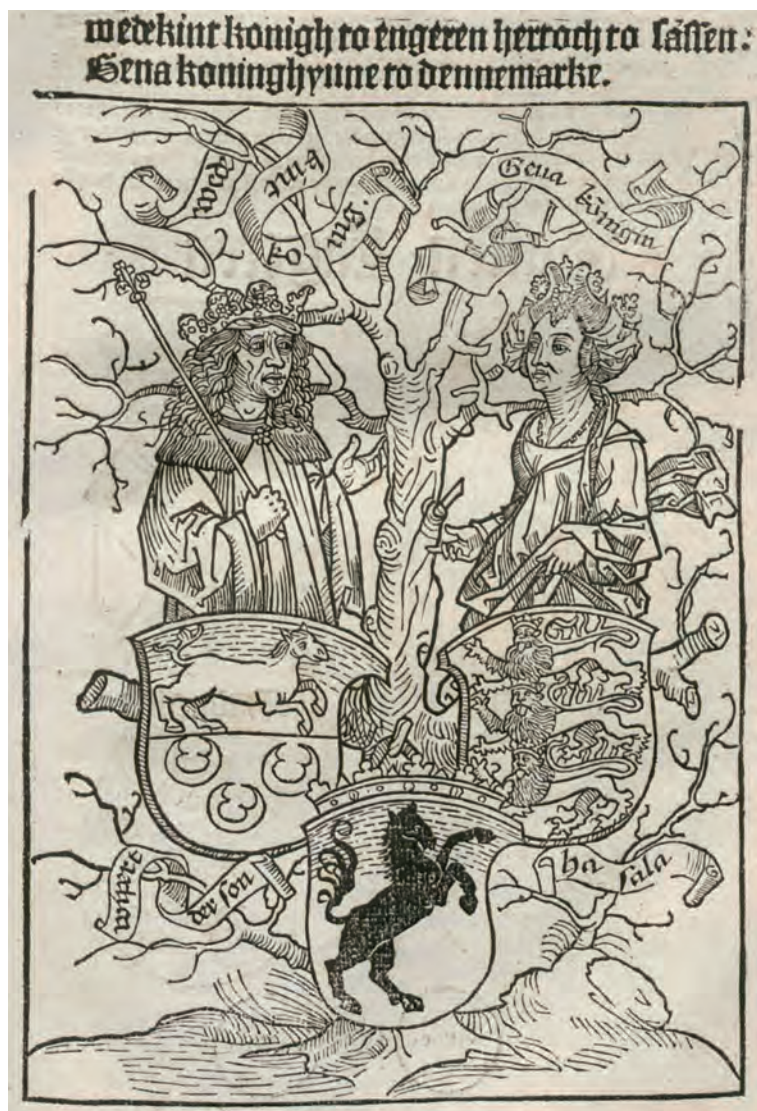 wedekint konigh to engeren hertoch to sassen:
Gena koninghynne to dennemarke.
wede
kint
konig.
Gena königin
der son
ha sala